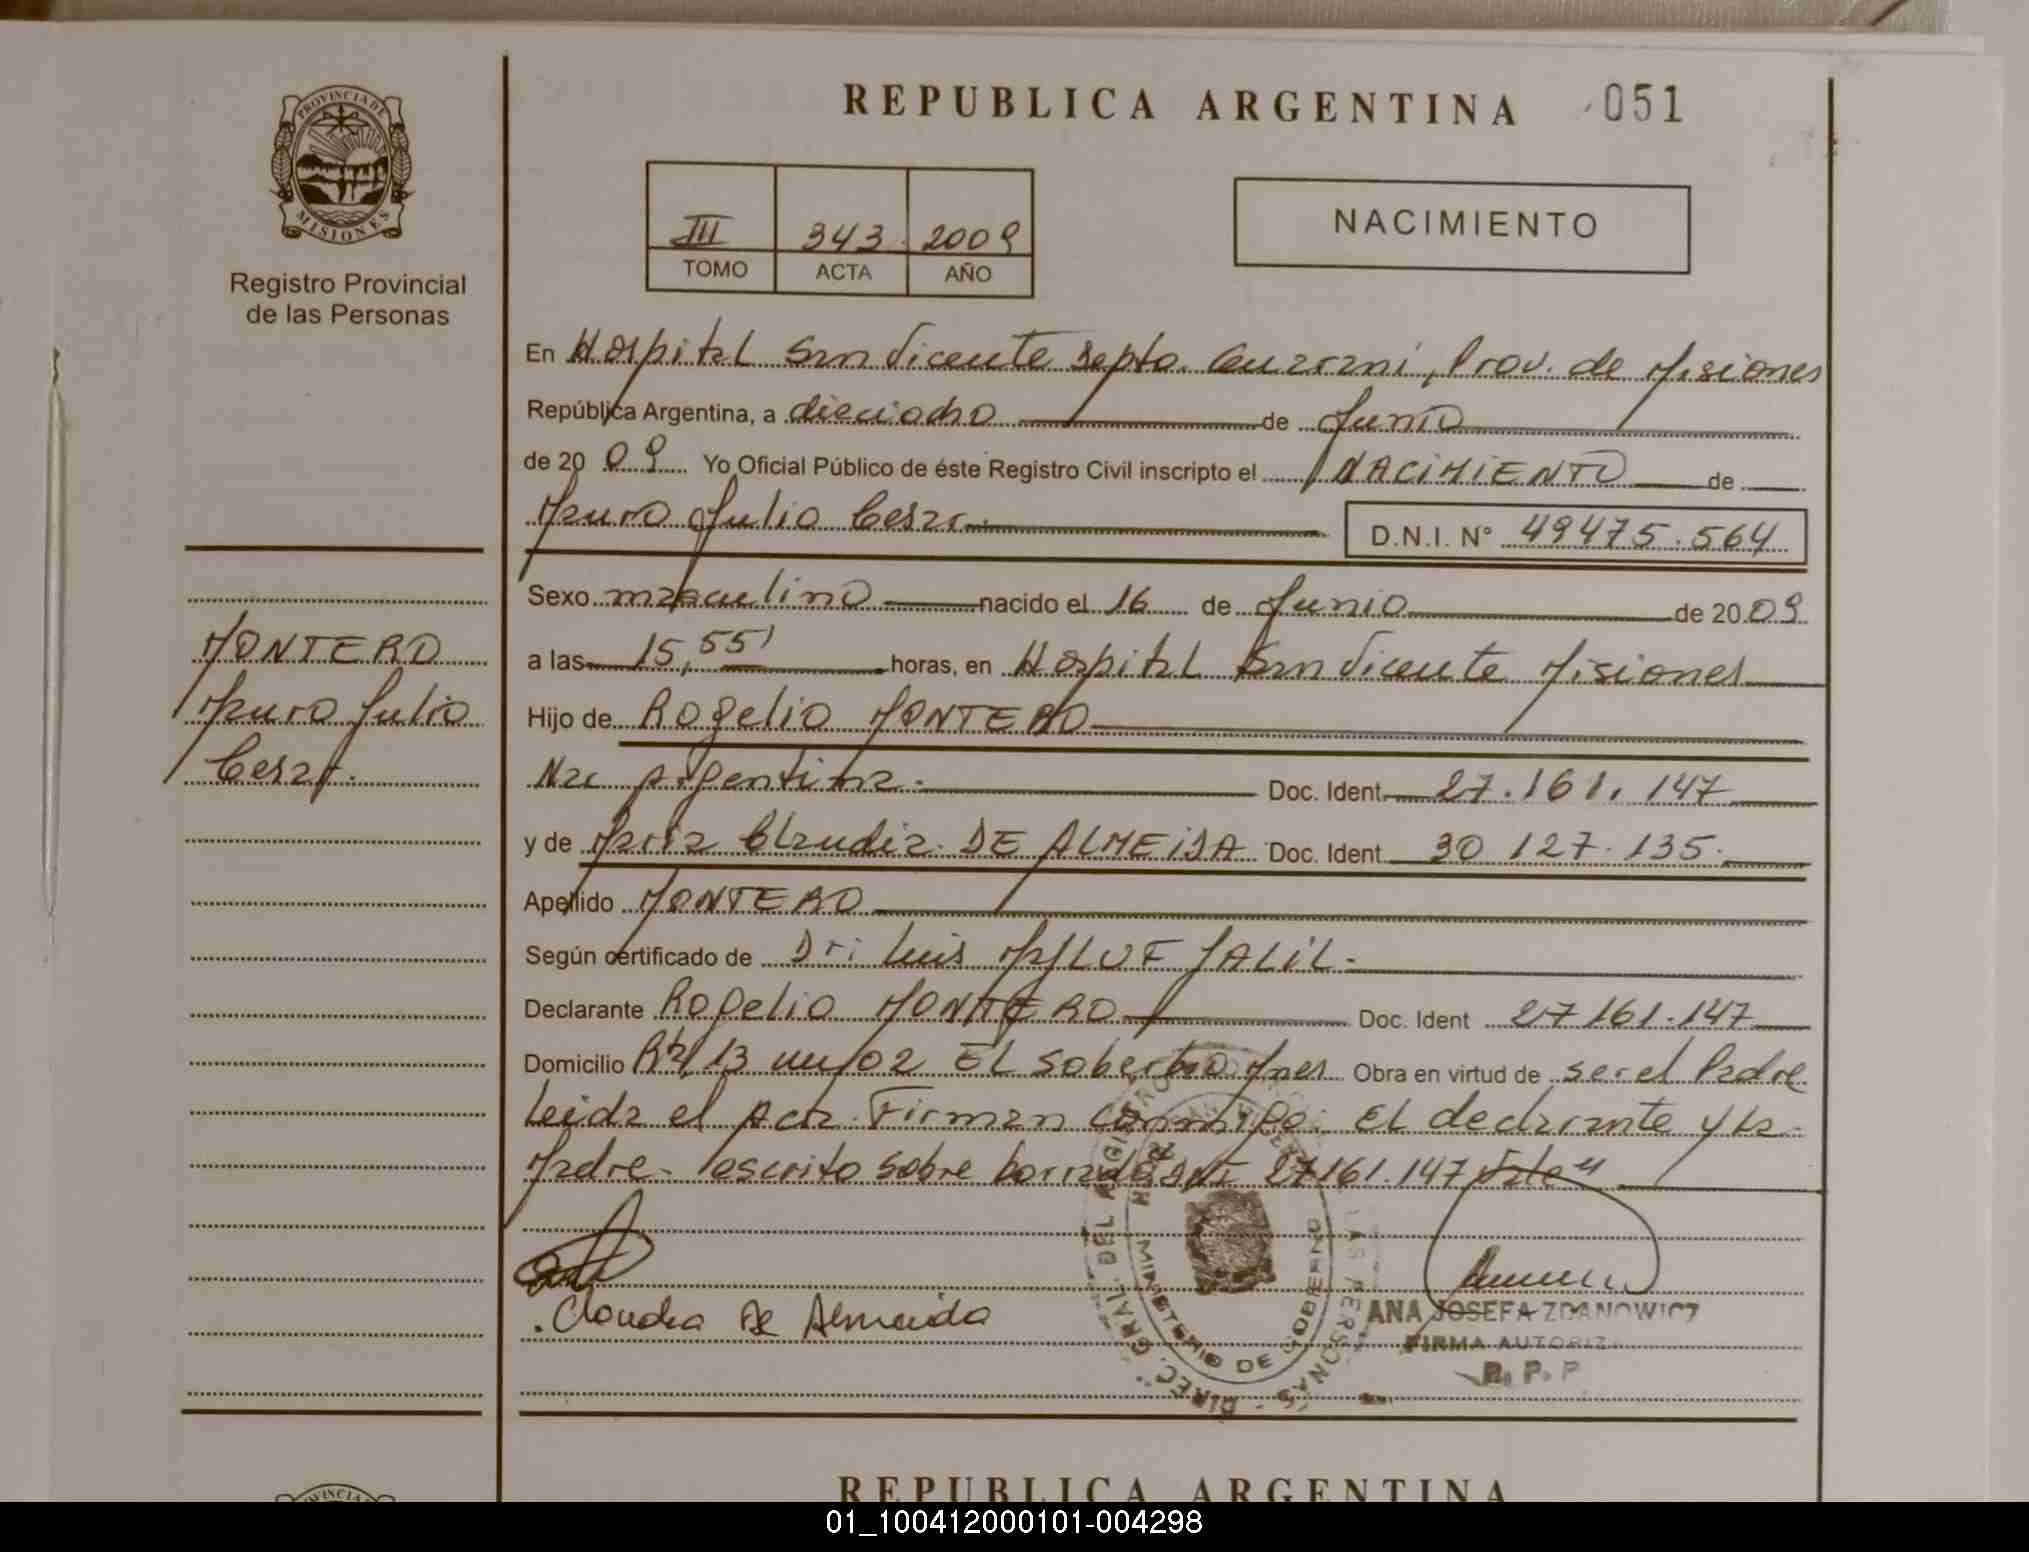 REPUBLICA ARGENTINA 051
PROVINCIA DE MISIONES
Registro Provincial
de las Personas
III 343 2009
TOMO ACTA AÑO
NACIMIENTO
En Hospital San Vicente Depto. Guarani, Prov. de Misiones
República Argentina, a dieciocho de Junio
de 2009 Yo Oficial Público de éste Registro Civil inscripto el NACIMIENTO de
Mauro Julio Cesar. D.N.I. N° 49475.564
Sexo masculino nacido el 16 de Junio de 2009
a las 15,55' horas, en Hospital San Vicente Misiones
Hijo de Rogelio MONTERO
Nac Argentina. Doc. Ident. 27.161.147
y de Maria Claudia DE ALMEIDA Doc. Ident. 30 127.135.
Apellido MONTERO
Según certificado de Dr: Luis JALIL.
Declarante Rogelio MONTERO Doc. Ident 27161.147
Domicilio 13 El Soberbio Mnes Obra en virtud de ser el Padre
Leida el Acta Firman conmigo: El declarante y la
Madre. escrito sobre borrado DNI 27161.147 Vale"
Claudia De Almeida
DIREC. GRAL. DEL REGISTRO DE LAS PERSONAS
MINISTERIO DE GOBIERNO
ANA JOSEFA ZDANOWICZ
FIRMA AUTORIZA
R. P. P
MONTERO
Mauro Julio
Cesar.
REPUBLICA ARGENTINA
01_100412000101-004298